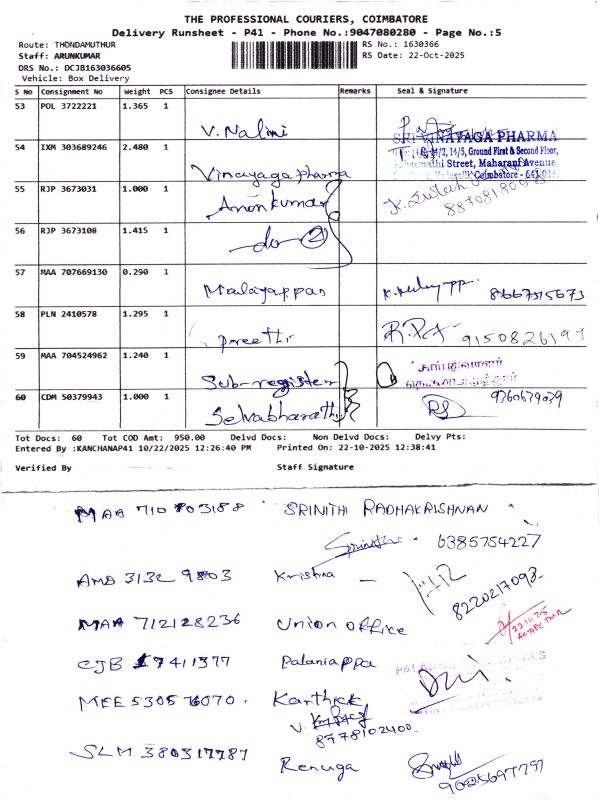 THE PROFESSIONAL COURIERS, COIMBATORE
Delivery Runsheet - P41 - Phone No.:9047080280 - Page No.:5
Route: THONDAMUTHUR
RS No.: 1630366
Staff: ARUNKUMAR
RS Date: 22-Oct-2025
DRS No.: DCJB163036605
Vehicle: Box Delivery
S No Consignment No Weight PCS Consignee Details Remarks Seal & Signature
53 POL 3722221 1.365 1 V. Nalini
54 IXM 303689246 2.480 1 Vinayaga pharma
SRI VINAYAGA PHARMA
14/2, 14/5, Ground First & Second Floor,
Street, Maharani Avenue,
Coimbatore - 641 041
55 RJP 3673031 1.000 1 Arunkumar
56 RJP 3673108 1.415 1 do
57 MAA 707669130 0.290 1 Malayappan 8667315673
58 PLN 2410578 1.295 1 preethi 9150826197
59 MAA 704524962 1.240 1 Sub-register
60 CDM 50379943 1.000 1 Selvabharathi 9760679039
Tot Docs: 60 Tot COD Amt: 950.00 Delvd Docs: Non Delvd Docs: Delvy Pts:
Entered By :KANCHANAP41 10/22/2025 12:26:40 PM Printed On: 22-10-2025 12:38:41
Verified By Staff Signature
MAA 710803188 SRINITHI RADHAKRISHNAN
Srinithi. 6385754227
AMD 3132 9803 Krishna -
8220217093
MAA 712128236 Union office
22.10.25
CJB 17411377 Palaniappa
MEE 530576070. Karthick
V.
8778102400.
SLM 380317787 Renuga
9025697797